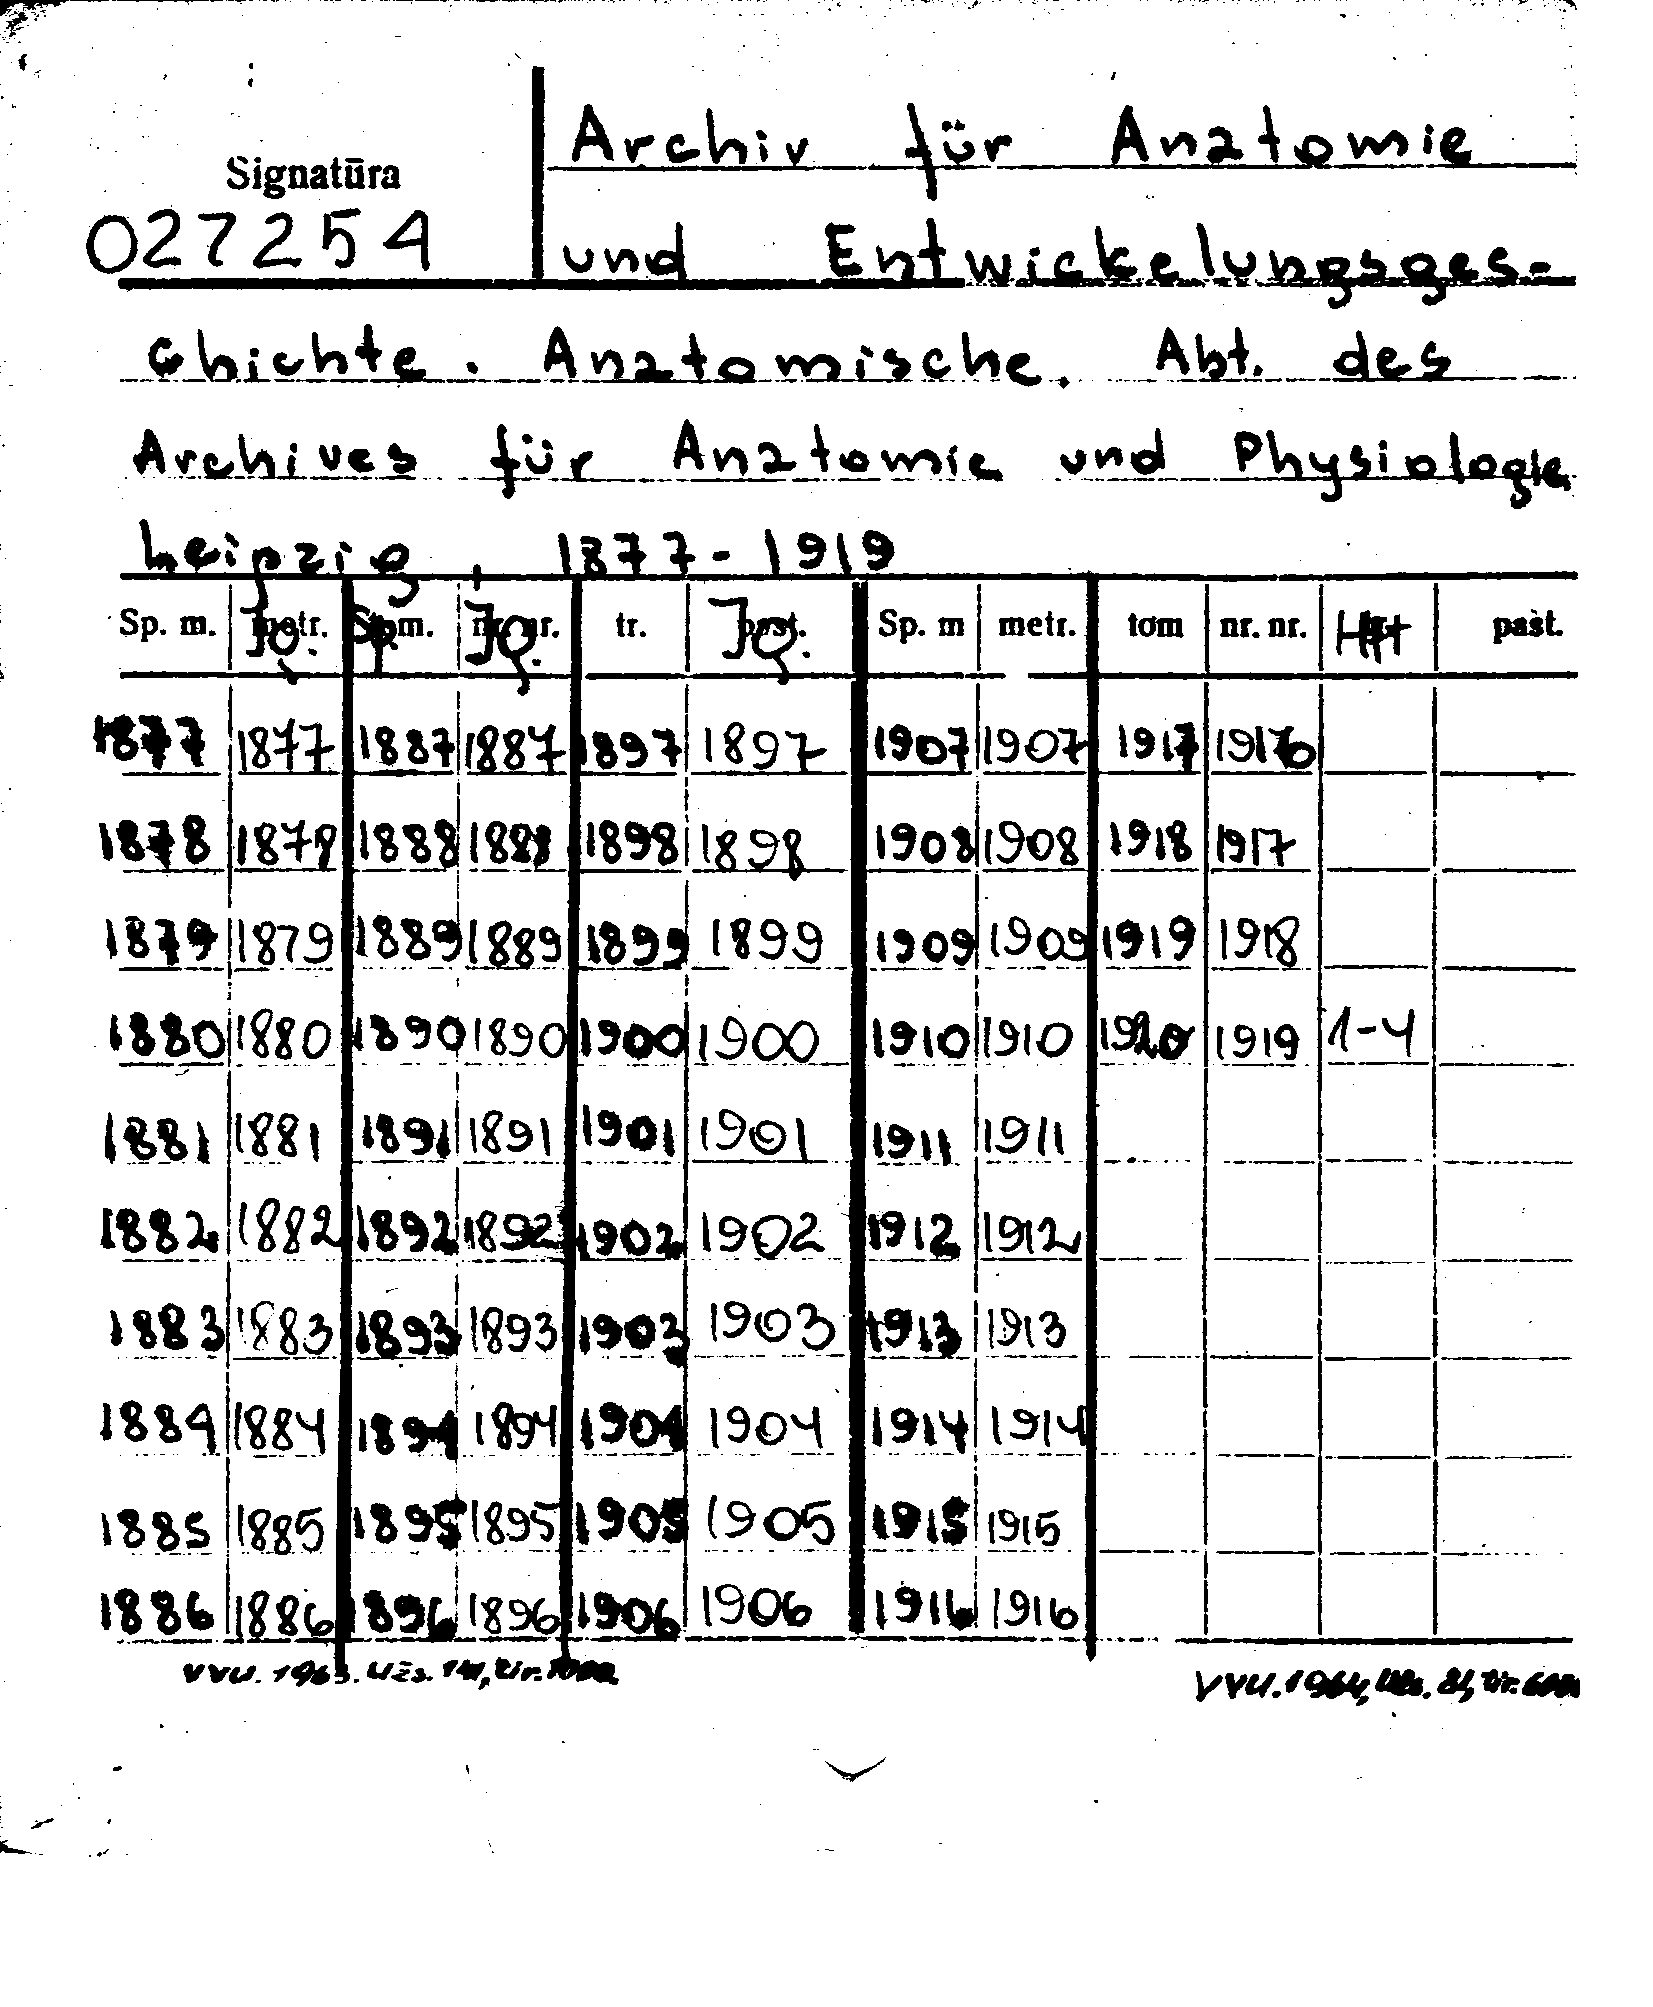 Archiv für Anatomie
Signatūra
027254
und Entwickelungsges-
chichte. Anatomische. Abt. des
Archives für Anatomie und Physiologie
Leipzig, 1877-1919
Sp. m. metr. Jg. Sp. m. nr. nr. Jg. tr. past. Jg. Sp. m metr. tom nr. nr. Hft past.
1877 1877 1887 1887 1897 1897 1907 1907 1917 1916
1878 1878 1888 1888 1898 1898 1908 1908 1918 1917
1879 1879 1889 1889 1899 1899 1909 1909 1919 1918
1880 1880 1890 1890 1900 1900 1910 1910 1920 1919 1-4
1881 1881 1891 1891 1901 1901 1911 1911
1882 1882 1892 1892 1902 1902 1912 1912
1883 1883 1893 1893 1903 1903 1913 1913
1884 1884 1894 1894 1904 1904 1914 1914
1885 1885 1895 1895 1905 1905 1915 1915
1886 1886 1896 1896 1906 1906 1916 1916
VVU. 1963. Užs. tir. VVU. 1964, Užs. 81, tir.